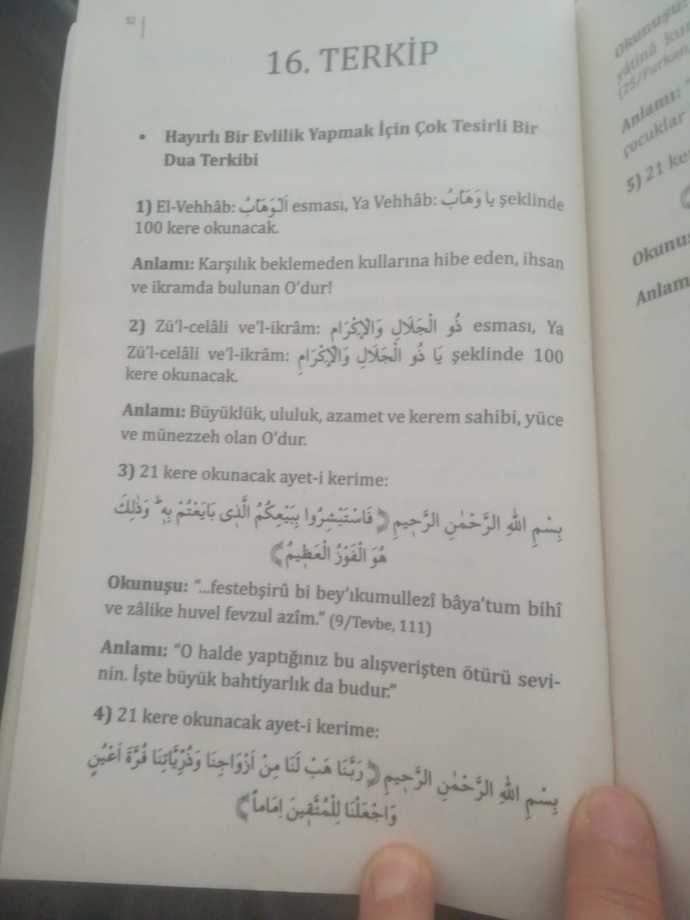 52
16. TERKİP
• Hayırlı Bir Evlilik Yapmak İçin Çok Tesirli Bir
Dua Terkibi
1) El-Vehhâb: اَلْوَهَّابُ esması, Ya Vehhâb: يا وَهَابُ şeklinde
100 kere okunacak.
Anlamı: Karşılık beklemeden kullarına hibe eden, ihsan
ve ikramda bulunan O’dur!
2) Zü’l-celâli ve’l-ikrâm: ذُو الْجَلَالِ وَالْاِكْرَامِ esması, Ya
Zü’l-celâli ve’l-ikrâm: يَا ذُو الْجَلَالِ وَالْاِكْرَامِ şeklinde 100
kere okunacak.
Anlamı: Büyüklük, ululuk, azamet ve kerem sahibi, yüce
ve münezzeh olan O’dur.
3) 21 kere okunacak ayet-i kerime:
بِسْمِ اللهِ الرَّحْمٰنِ الرَّحٖيمِ ﴿ فَاسْتَبْشِرُوا بِبَيْعِكُمُ الَّذٖى بَايَعْتُمْ بِهٖ ؕ وَذٰلِكَ
هُوَ الْفَوْزُ الْعَظٖيمُ ﴾
Okunuşu: “...festebşirû bi bey’ıkumullezî bâya’tum bihî
ve zâlike huvel fevzul azîm.” (9/Tevbe, 111)
Anlamı: “O halde yaptığınız bu alışverişten ötürü sevi-
nin. İşte büyük bahtiyarlık da budur.”
4) 21 kere okunacak ayet-i kerime:
بِسْمِ اللهِ الرَّحْمٰنِ الرَّحٖيمِ ﴿ رَبَّنَا هَبْ لَنَا مِنْ اَزْوَاجِنَا وَذُرِّيَّاتِنَا قُرَّةَ اَعْيُنٍ
وَاجْعَلْنَا لِلْمُتَّقٖينَ اِمَاماً ﴾
Okunuşu:
yâtinâ
(25/Furkan
Anlamı:
çocuklar
5) 21
Okunu
Anlam